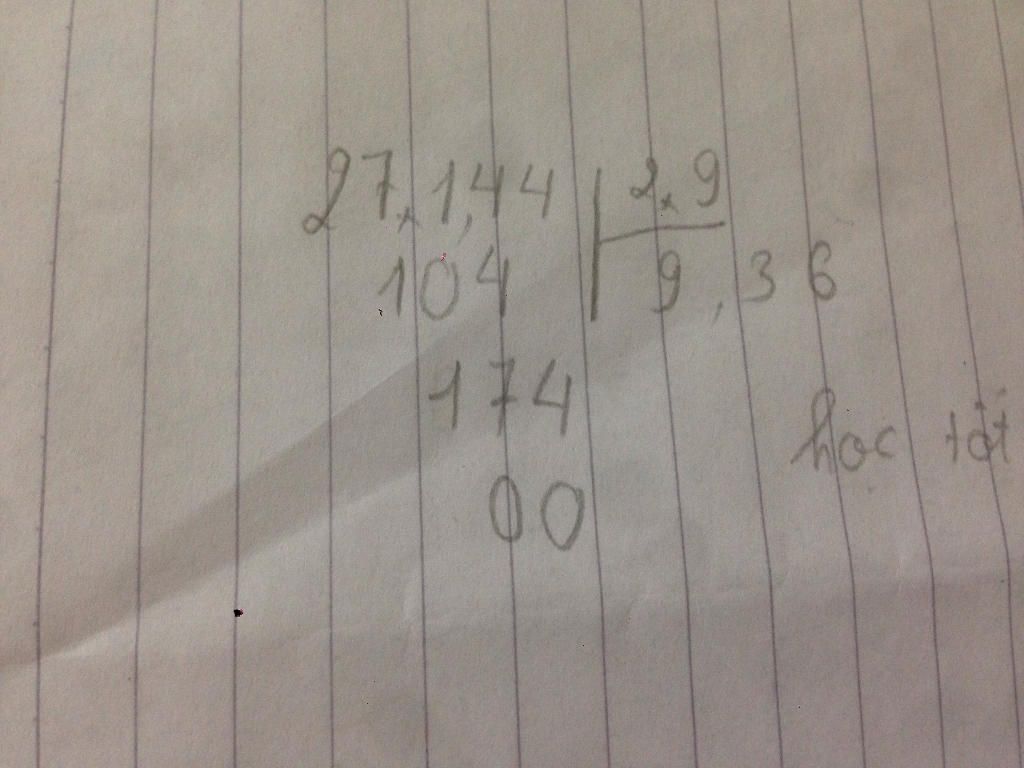 27,1,44 2,9
104 9,36
174
00
học tốt